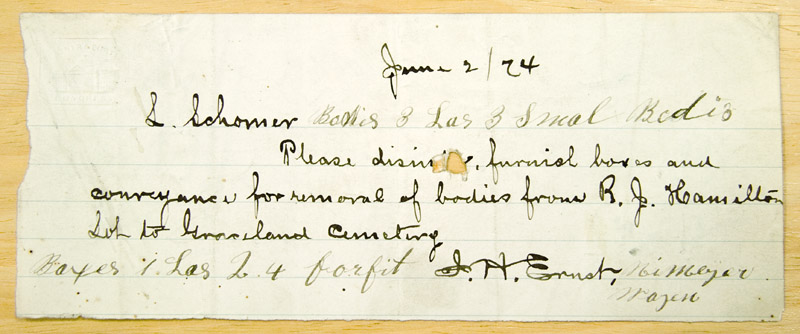 June 2/74
L. Schomer Bodies 3 Las 3 Smal Bodis
Please disin, furnish boxes and
conveyance for removal of bodies from R. J. Hamilton
Lot to Graceland Cemetery
Boxes 1. Las 2. 4 forfit J. H. Ernst, Nimeyer
Wagen